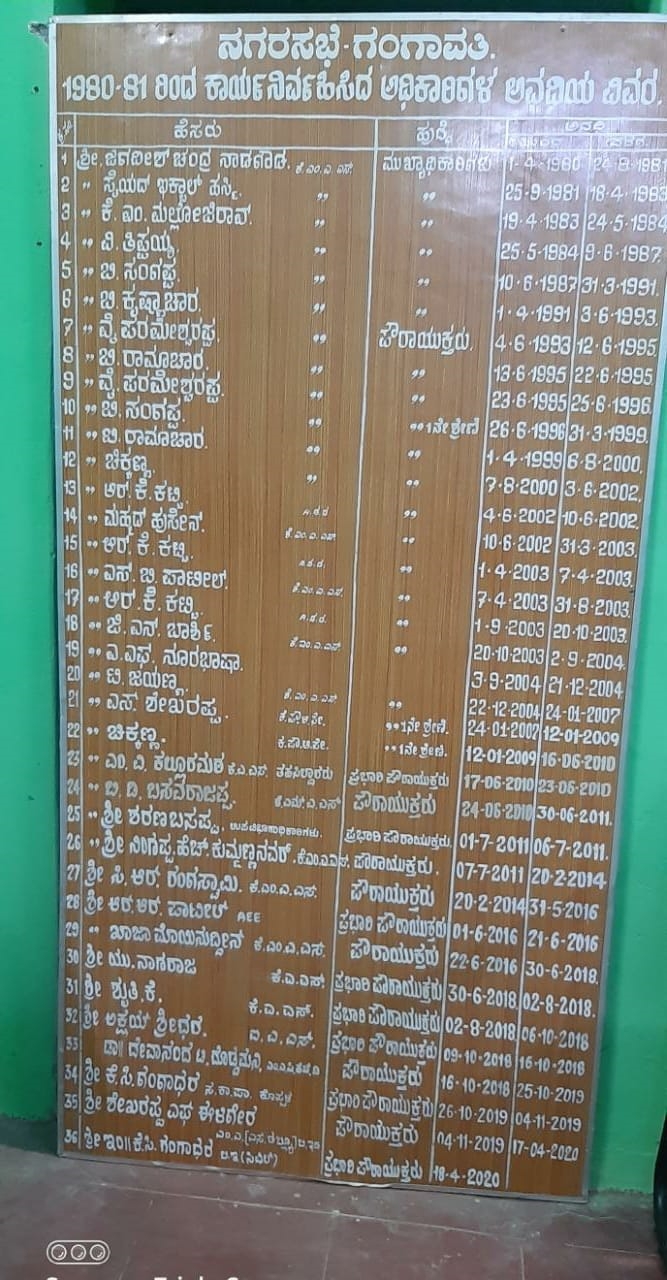 ನಗರಸಭೆ-ಗಂಗಾವತಿ.
1980-81 ರಿಂದ ಕಾರ್ಯನಿರ್ವಹಿಸಿದ ಅಧಿಕಾರಿಗಳ ಅವಧಿಯ ವಿವರ.
ಹೆಸರು ಹುದ್ದೆ ಅವಧಿ
1 ಶ್ರೀ. ಜಗದೀಶ್ ಚಂದ್ರ ನಾಡಗೌಡ. ಕೆ.ಎಂ.ಎ.ಎಸ್. ಮುಖ್ಯಾಧಿಕಾರಿಗಳು 1-4-1980
2 " ಸೈಯದ್ " " 25-9-1981 18-4-1983
3 " ಕೆ. ಎಂ. ಮಲ್ಲೋಜಿರಾವ್. " " 19-4-1983 24-5-1984
4 " ವಿ. ತಿಪ್ಪಯ್ಯ " " 25-5-1984 9-6-1987
5 " ಬಿ. ಸಂಗಪ್ಪ " " 10-6-1987 31-3-1991.
6 " ಬಿ. ಕೃಷ್ಣಾಚಾರ. " " 1-4-1991 3-6-1993.
7 " ವೈ. ಪರಮೇಶ್ವರಪ್ಪ. " ಪೌರಾಯುಕ್ತರು. 4-6-1993 12-6-1995.
8 " ಬಿ. ರಾಮಾಚಾರ. " " 13-6-1995 22-6-1995
9 " ವೈ. ಪರಮೇಶ್ವರಪ್ಪ. " " 23-6-1995 25-6-1996.
10 " ಬಿ. ಸಂಗಪ್ಪ. " " 1ನೇ ಶ್ರೇಣಿ 26-6-1996 31-3-1999.
11 " ಬಿ. ರಾಮಾಚಾರ. " " 1-4-1999 6-8-2000.
12 " ಚಿಕ್ಕಣ್ಣ. " " 7-8-2000 3-6-2002.
13 " ಆರ್. ಕೆ. ಕಟ್ಟಿ " 4-6-2002 10-6-2002.
14 " ಮಹ್ಮದ್ ಹುಸೇನ್. ಕೆ.ಎಂ.ಎ.ಎಸ್ " 10-6-2002 31-3-2003.
15 " ಆರ್. ಕೆ. ಕಟ್ಟಿ. " 1-4-2003 7-4-2003.
16 " ಎಸ್. ಬಿ. ಪಾಟೀಲ್. ಕೆ.ಎಂ.ಎ.ಎಸ್ " 7-4-2003 31-8-2003.
17 " ಆರ್. ಕೆ. ಕಟ್ಟಿ. " 1-9-2003 20-10-2003.
18 " ಜಿ. ಎನ್. ಬಾರ್ಶಿ. ಕೆ.ಎಂ.ಎ.ಎಸ್. " 20-10-2003 2-9-2004.
19 " ಎ. ಎಫ್. ನೂರಭಾಷಾ. 3-9-2004 21-12-2004
20 " ಟಿ. ಜಯಣ್ಣ. ಕೆ.ಎಂ.ಎ.ಎಸ್ " 22-12-2004 24-01-2007
21 " ಎಸ್. ಶೇಖರಪ್ಪ. " 1ನೇ ಶ್ರೇಣಿ. 24-01-2007 12-01-2009
22 " ಚಿಕ್ಕಣ್ಣ. " 1ನೇ ಶ್ರೇಣಿ. 12-01-2009 16-06-2010
23 " ಎಂ. ವಿ. ಕಲ್ಲೂರಮಠ ಕೆ.ಎ.ಎಸ್. ತಹಸಿಲ್ದಾರರು ಪ್ರಭಾರಿ ಪೌರಾಯುಕ್ತರು 17-06-2010 23-06-2010
24 " ಬಿ. ಡಿ. ಬಸವರಾಜಪ್ಪ. ಕೆ.ಎಮ್.ಎ.ಎಸ್ ಪೌರಾಯುಕ್ತರು 24-06-2010 30-06-2011.
25 " ಶ್ರೀ ಶರಣಬಸಪ್ಪ. ಉಪವಿಭಾಗಾಧಿಕಾರಿಗಳು. ಪ್ರಭಾರಿ ಪೌರಾಯುಕ್ತರು. 01-7-2011 06-7-2011.
26 " ಶ್ರೀ ನಿಂಗಪ್ಪ. ಹೆಚ್. ಕುಮ್ಮಣ್ಣನವರ್. ಕೆ.ಎಂ.ಎ.ಎಸ್. ಪೌರಾಯುಕ್ತರು. 07-7-2011 20-2-2014
27 ಶ್ರೀ ಸಿ. ಆರ್. ರಂಗಸ್ವಾಮಿ. ಕೆ.ಎಂ.ಎ.ಎಸ್. ಪೌರಾಯುಕ್ತರು 20-2-2014 31-5-2016
28 ಶ್ರೀ ಆರ್.ಆರ್. ಪಾಟೀಲ್ AEE ಪ್ರಭಾರಿ ಪೌರಾಯುಕ್ತರು 01-6-2016 21-6-2016
29 " ಖಾಜಾ ಮೊಯಿನುದ್ದೀನ್ ಕೆ.ಎಂ.ಎ.ಎಸ್. ಪೌರಾಯುಕ್ತರು 22-6-2016 30-6-2018.
30 ಶ್ರೀ ಯು. ನಾಗರಾಜ ಕೆ.ಎ.ಎಸ್ ಪ್ರಭಾರಿ ಪೌರಾಯುಕ್ತರು 30-6-2018 02-8-2018.
31 ಶ್ರೀ ಶೃತಿ. ಕೆ. ಕೆ. ಎ. ಎಸ್. ಪ್ರಭಾರಿ ಪೌರಾಯುಕ್ತರು 02-8-2018 06-10-2018
32 ಶ್ರೀ ಅಕ್ಷಯ್ ಶ್ರೀಧರ. ಐ. ಎ. ಎಸ್. ಪ್ರಭಾರಿ ಪೌರಾಯುಕ್ತರು 09-10-2018 16-10-2018
33 ಡಾ|| ದೇವಾನಂದ ಟಿ. ದೊಡ್ಡಮನಿ, ಪೌರಾಯುಕ್ತರು 16-10-2018 25-10-2019
34 ಶ್ರೀ ಕೆ.ಸಿ. ಗಂಗಾಧರ ಸ.ಕಾ.ಪಾ. ಕೊಪ್ಪಳ ಪ್ರಭಾರಿ ಪೌರಾಯುಕ್ತರು 26-10-2019 04-11-2019
35 ಶ್ರೀ ಶೇಖರಪ್ಪ ಎಫ್ ಈಳಗೇರ ಪೌರಾಯುಕ್ತರು 04-11-2019 17-04-2020
36 ಶ್ರೀ ಇಂ|| ಕೆ.ಸಿ. ಗಂಗಾಧರ ಬಿ.ಇ (ಸಿವಿಲ್) ಪ್ರಭಾರಿ ಪೌರಾಯುಕ್ತರು 18-4-2020